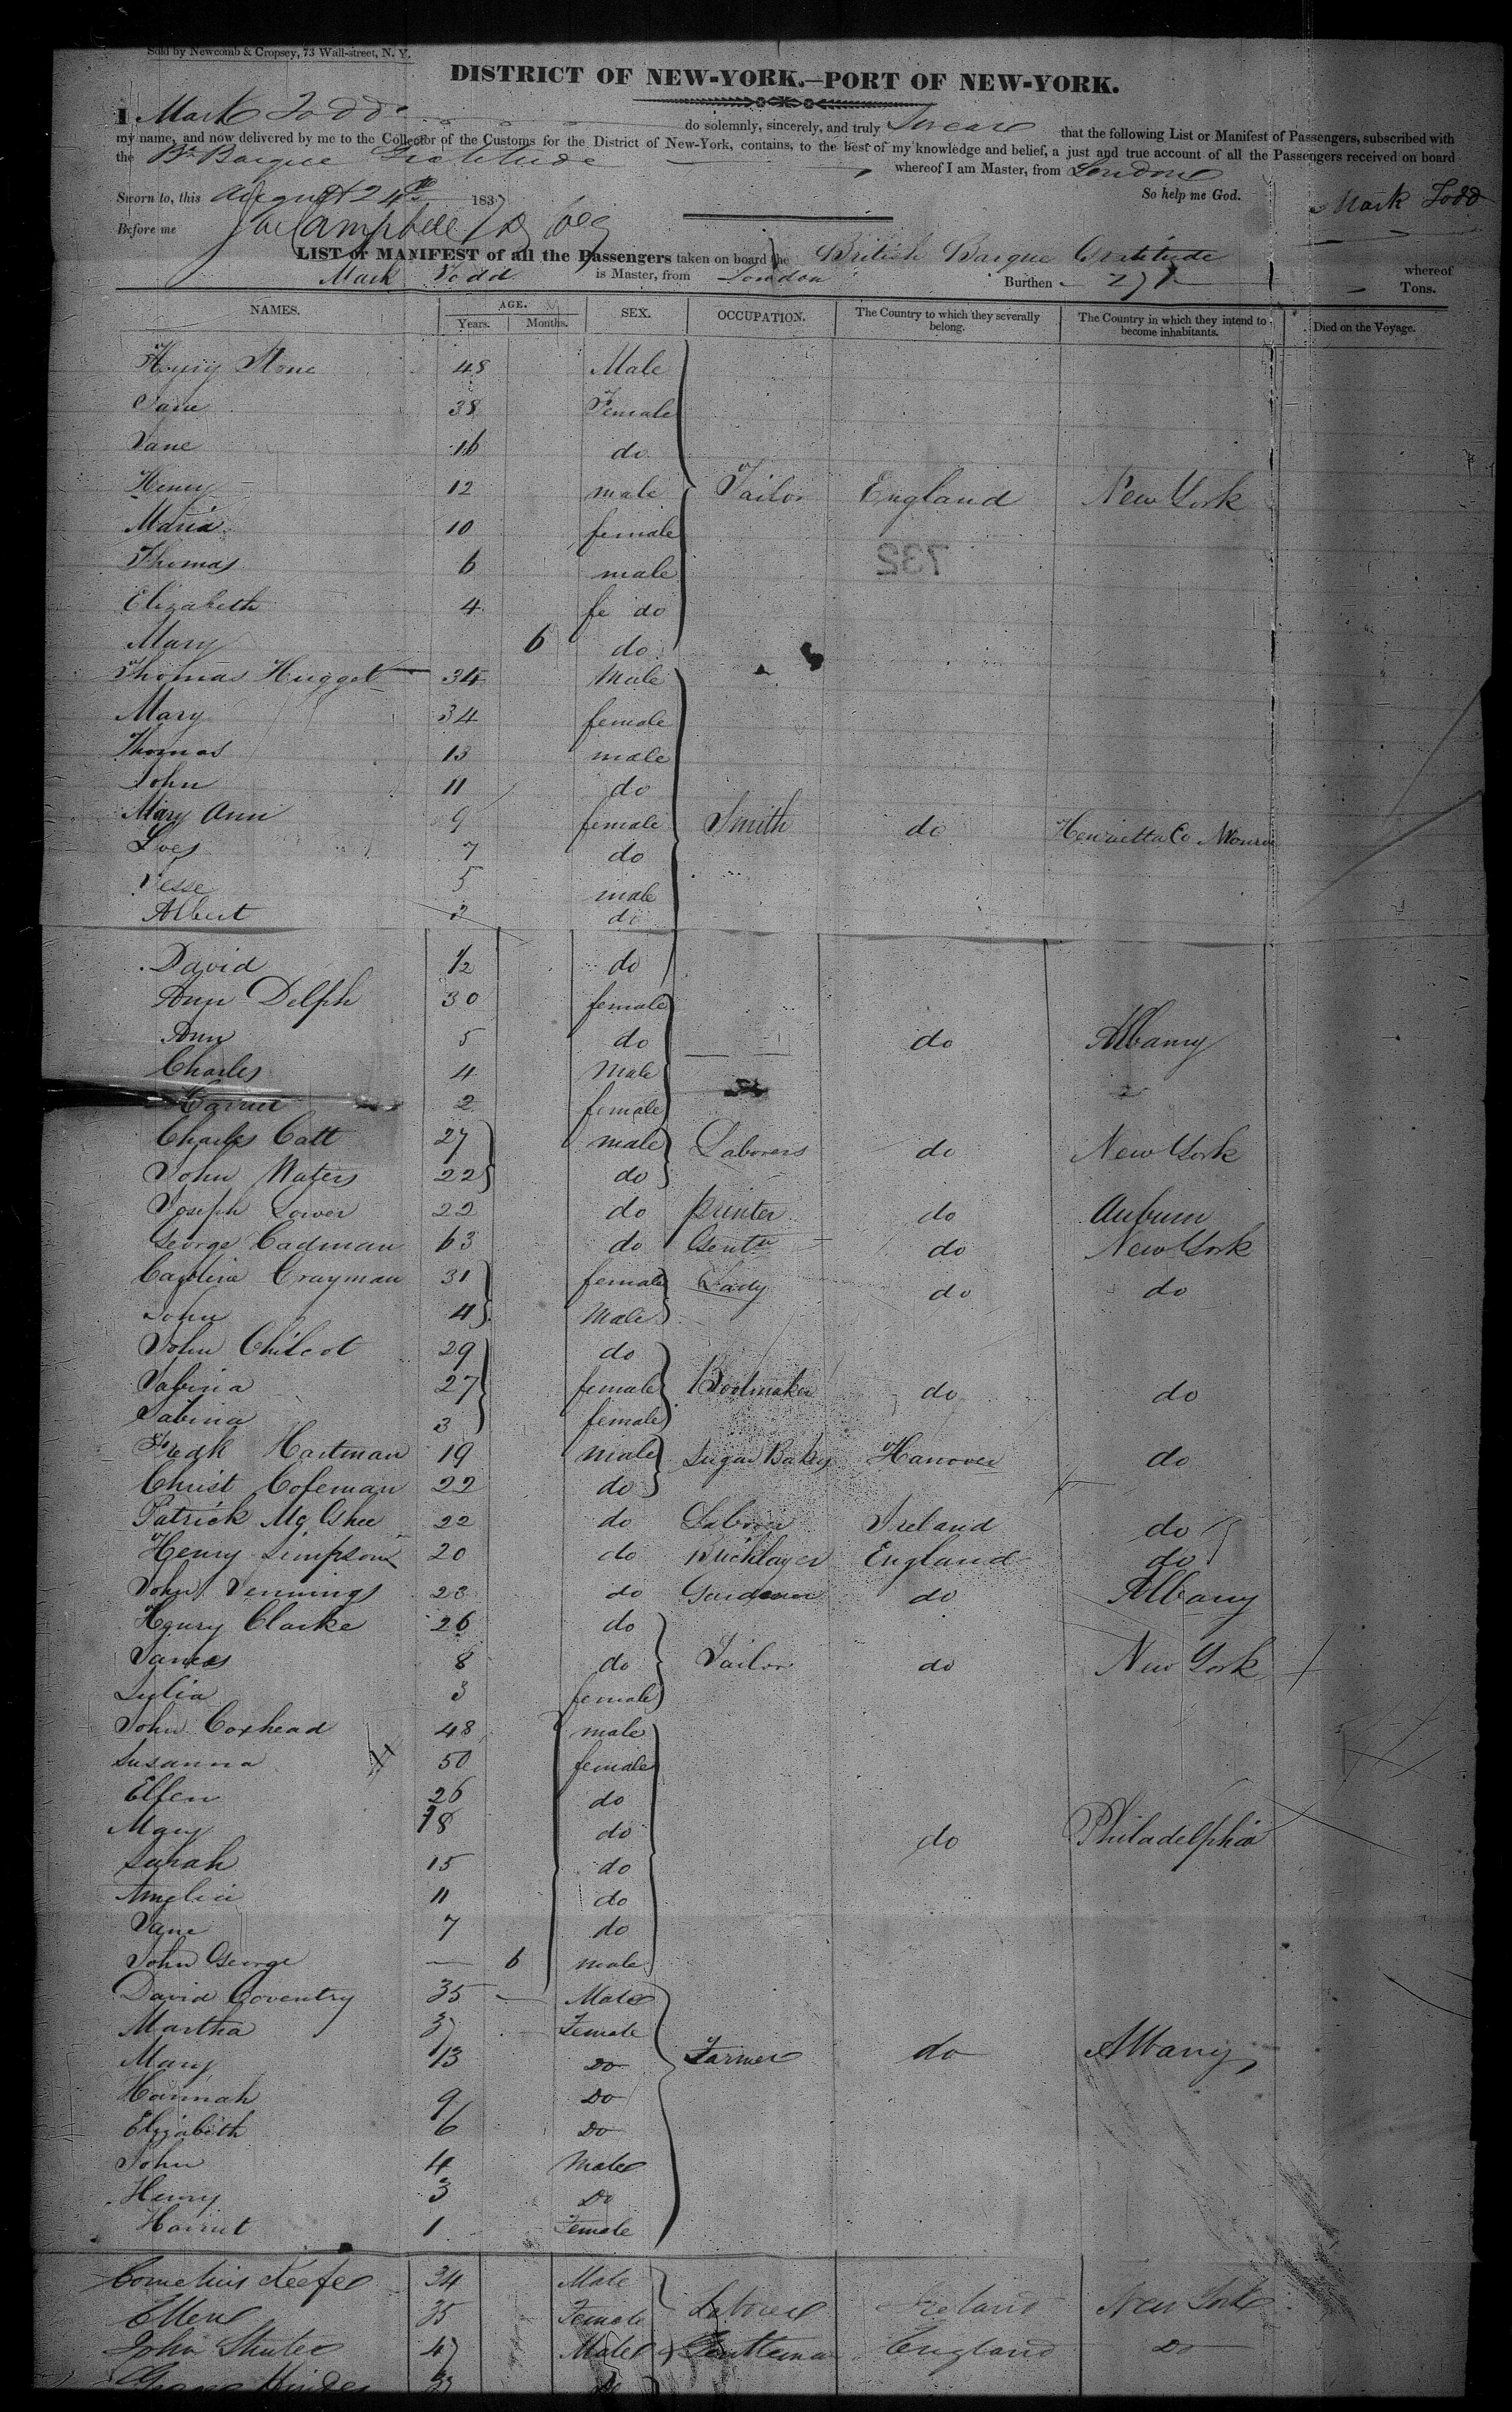 Sold by Newcomb & Cropsey, 73 Wall-street, N. Y.
DISTRICT OF NEW-YORK.—PORT OF NEW-YORK.
I Mark Todd do solemnly, sincerely, and truly Swear that the following List or Manifest of Passengers, subscribed with
my name, and now delivered by me to the Collector of the Customs for the District of New-York, contains, to the best of my knowledge and belief, a just and true account of all the Passengers received on board
the Br Barque Gratitude whereof I am Master, from London
Sworn to, this August 24th 1837 So help me God. Mark Todd
Before me Campbell
LIST or MANIFEST of all the Passengers taken on board the British Barque Gratitude whereof
Mark Todd is Master, from London Burthen Tons.
NAMES. AGE. SEX. OCCUPATION. The Country to which they severally belong. The Country in which they intend to become inhabitants. Died on the Voyage.
Years. Months.
Henry Stone 48 Male
Jane 38 Female
Jane 16 do
Henry 12 male Tailor England New York
Maria 10 female
732
Thomas 6 male
Elizabeth 4 fe do
Mary 6 do
Thomas Hugget 34 Male
Mary 34 female
Thomas 13 male
John 11 do
Mary Ann 9 female Smith do Henrietta Co Monroe
7 do
Jesse 5 male
Albert 3 do
David 1/2 do
Ann Delph 30 female
Ann 5 do do Albany
Charles 4 Male
Harriet 2 female
Charles Catt 27 male Laborers do New York
John Waters 22 do
Joseph Lower 22 do printer do Auburn
George Cadman 63 do Gentn do New York
Caroline Crayman 31 female Lady do do
John 4 Male
John Chilcot 29 do
Sabina 27 female Bootmaker do do
Sabina 3 female
Fredk Hartman 19 male Sugar Bakers Hanover do
Christ Cofeman 22 do
Patrick Mc Ghee 22 do Laborer Ireland do
Henry Simpson 20 do Bricklayer England do
John Jennings 23 do Gardener do Albany
Henry Clarke 26 do
James 8 do Tailor do New York
Julia 3 female
John Coxhead 48 male
Susanna 50 female
Ellen 26 do
Mary 18 do do Philadelphia
Sarah 15 do
Amelia 11 do
Jane 7 do
John George — 6 male
David Coventry 35 — Male
Martha 37 Female
Mary 13 Do Farmer do Albany
Hannah 9 Do
Elizabeth 6 Do
John 4 Male
Henry 3 Do
Harriet 1 Female
Cornelius Keefe 34 Male
Ellen 35 Female Laborer Ireland New York
John Shutes 47 Male Gentleman England Do
Do